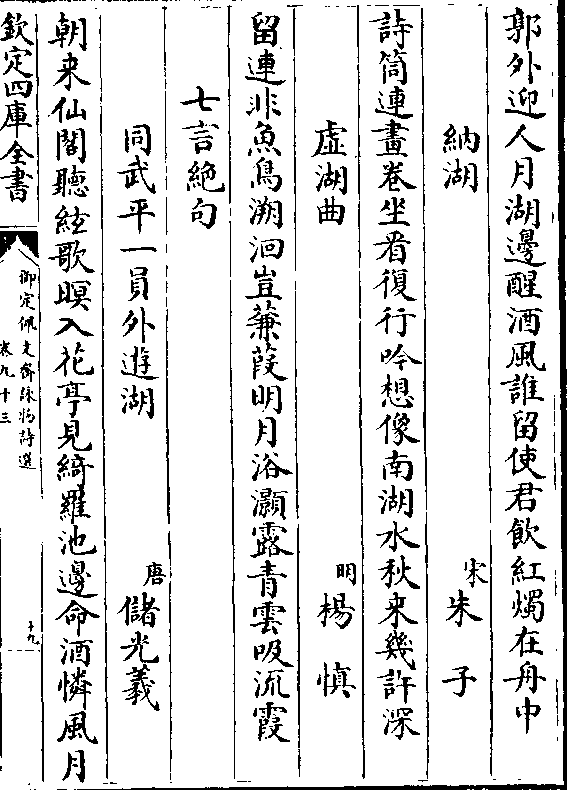 郭外迎人月湖邊醒酒風誰留使君飲紅燭在舟中
納湖　宋朱子
詩筒連畫卷坐看復行吟想像南湖水秋来幾許深
虛湖曲　明楊慎
留連非魚鳥溯洄豈蒹葭明月浴灝露青雲吸流霞
七言絶句
同武平一員外遊湖　唐儲光羲
朝来仙閣聽絃歌暝入花亭見綺羅池邊命酒憐風月
欽定四庫全書
御定佩文齋詠物詩選
卷九十三
十九